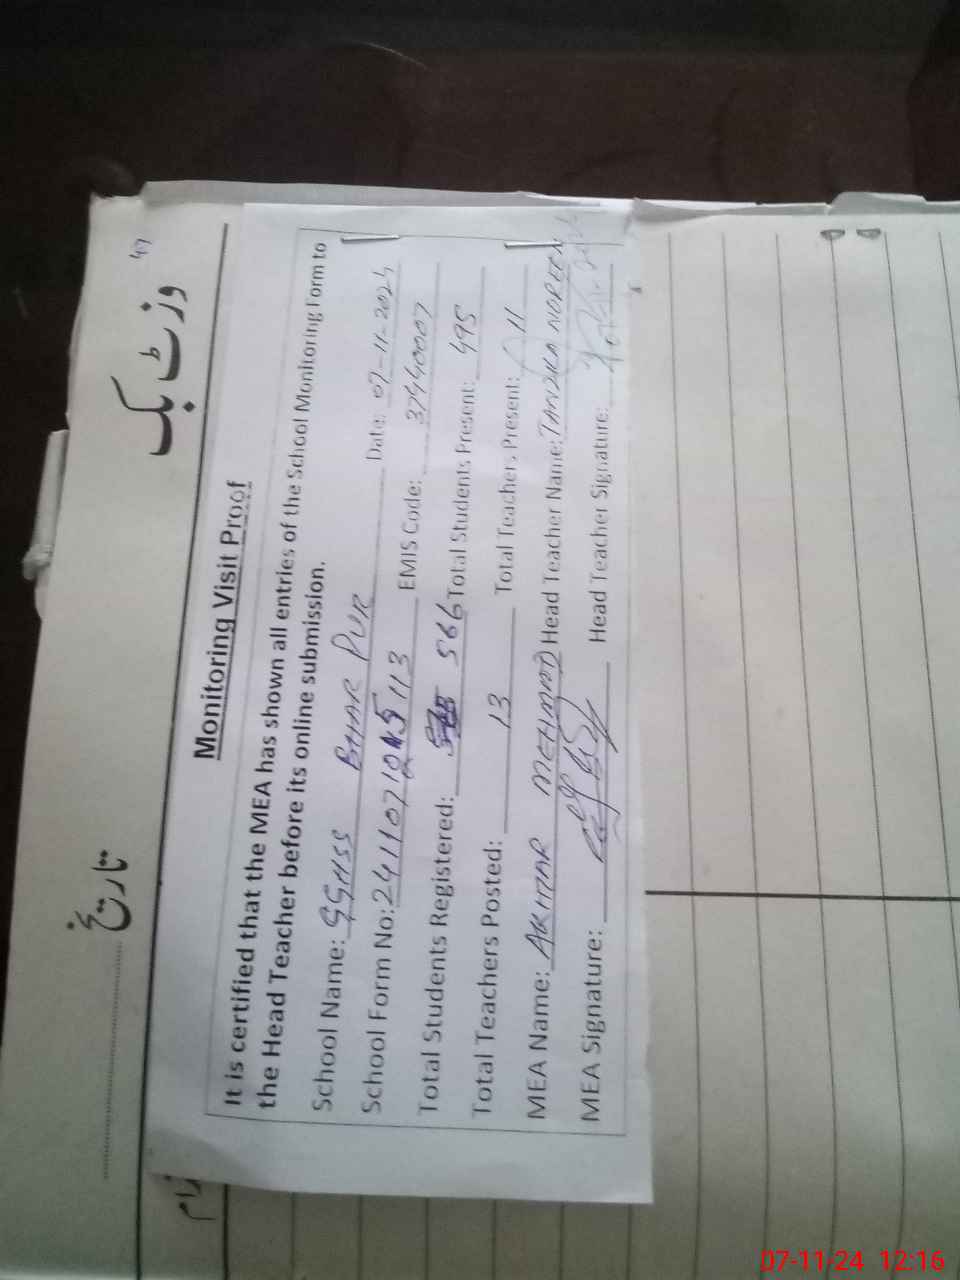 49
وزٹ بک
تاریخ
Monitoring Visit Proof
It is certified that the MEA has shown all entries of the School Monitoring Form to
the Head Teacher before its online submission.
School Name: GGHSS BHAR PUR Date: 07-11-2024
School Form No: EMIS Code: 37440007
Total Students Registered: 566 Total Students Present: 495
Total Teachers Posted: 13 Total Teachers Present: 11
MEA Name: AKHTAR MEHMOOD Head Teacher Name: TANZILA NOREEN
MEA Signature: Head Teacher Signature:
07-11-24 12:16